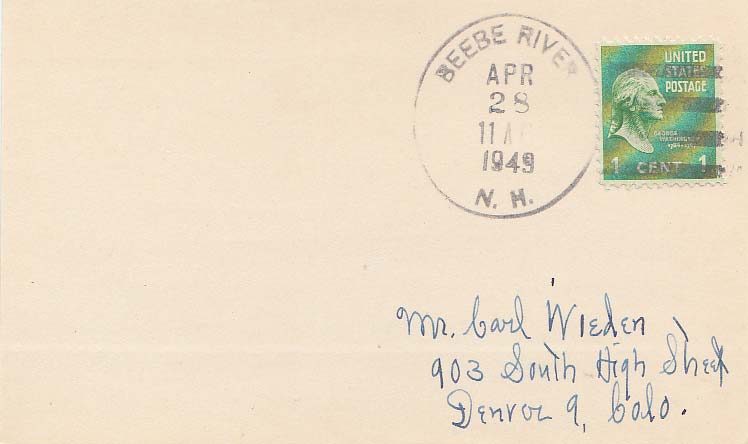 BEEBE RIVER
APR
28
11 A
1949
N. H.
UNITED
STATES
POSTAGE
GEORGE
WASHINGTON
1 CENT 1
Mr. Carl Wieden
903 South High Street
Denver 9, Colo.